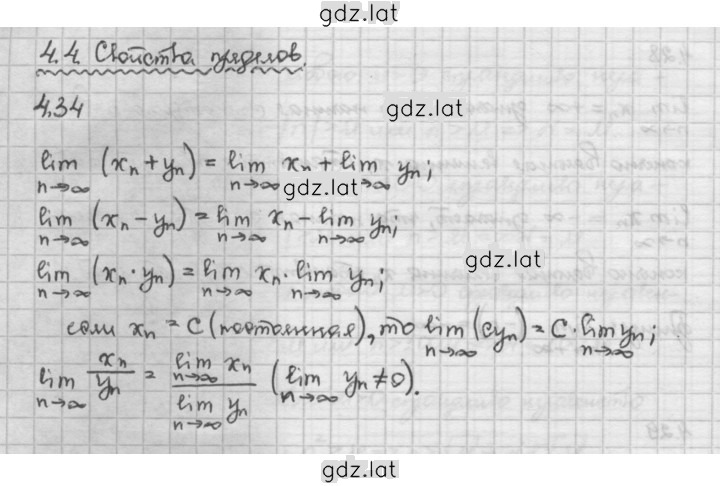 gdz.lat
4.4. Свойства пределов.
4.34
gdz.lat
lim (xₙ + yₙ) = lim xₙ + lim yₙ;
n→∞ n→∞ n→∞
gdz.lat
lim (xₙ − yₙ) = lim xₙ − lim yₙ;
n→∞ n→∞ n→∞
gdz.lat
lim (xₙ · yₙ) = lim xₙ · lim yₙ;
n→∞ n→∞ n→∞
если xₙ = C (постоянная), то lim (cyₙ) = C · lim yₙ;
n→∞ n→∞
lim xₙ/yₙ = lim xₙ / lim yₙ (lim yₙ ≠ 0).
n→∞ n→∞ n→∞ n→∞
gdz.lat